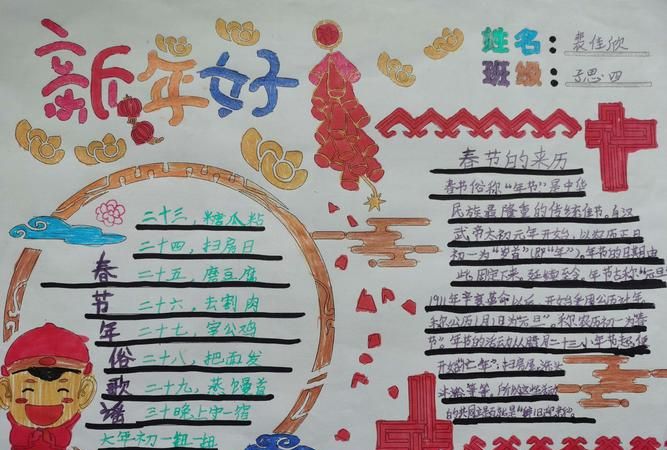 新年好
姓名：裴佳欣
班级：子思·四
春节年俗歌谣
二十三，糖瓜粘
二十四，扫房日
二十五，磨豆腐
二十六，去割肉
二十七，宰公鸡
二十八，把面发
二十九，蒸馒首
三十晚上守一宿
大年初一扭一扭
春节的来历
春节俗称“年节”是中华
民族最隆重的传统佳节。自汉
武帝太初元年开始，以农历正月
初一为“岁首”（即“年”），年节的日期由
此固定下来，延续至今。年节古称“元旦”
1911年辛亥革命以后，开始采用公历计年，
称公历1月1日为“元旦”，称农历初一为“春
节”。年节的活动从腊月二十三小年节起，便
开始“忙年”：扫房屋、洗头
沐浴等等，所以这些活动
的共同